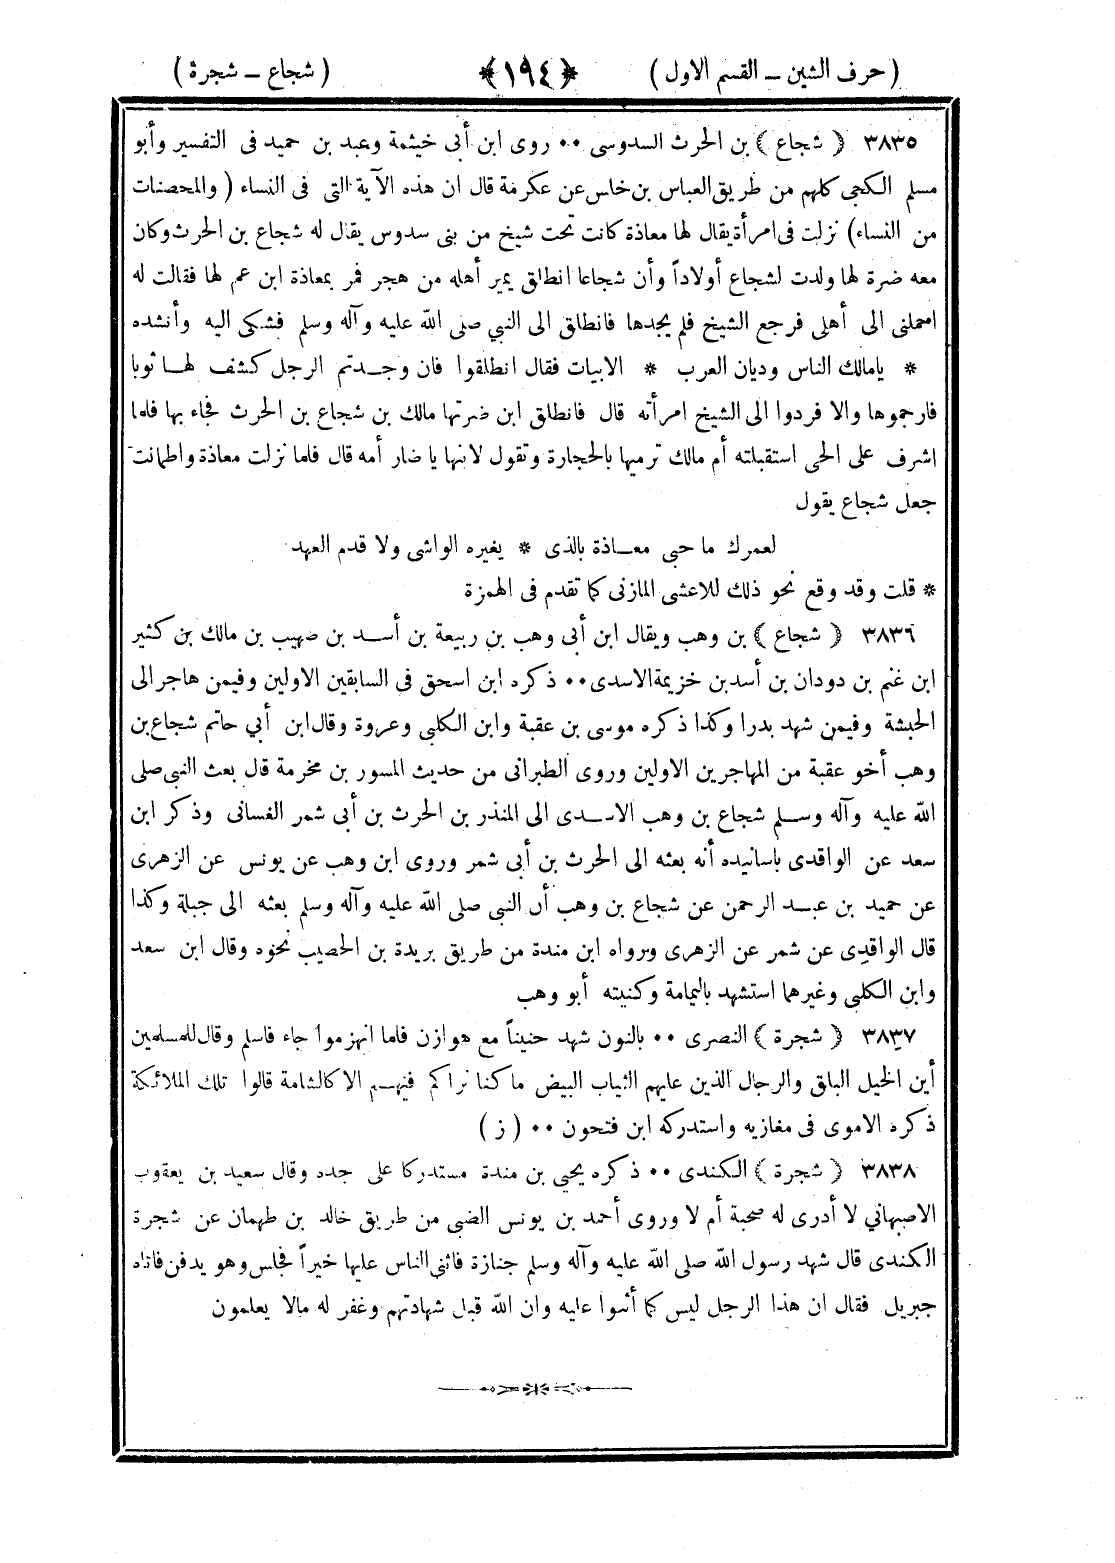 ( حرف الشين ــ القسم الاول ) ﴿ ١٩٤ ﴾ ( شجاع ــ شجرة )
٣٨٣٥ ﴿ شجاع ﴾ بن الحرث السدوسى ٠٠ روى ابن أبى خيثمة وعبد بن حميد فى التفسير وأبو
مسلم الكجى كلهم من طريق العباس بن خليس عن عكرمة قال ان هذه الآية التى فى النساء ( والمحصنات
من النساء) نزلت فى امرأة يقال لها معاذة كانت تحت شيخ من بنى سدوس يقال له شجاع بن الحرث وكان
معه ضرة لها ولدت لشجاع أولاداً وأن شجاعا انطلق يمير أهله من هجر فمر بمعاذة ابن عم لها فقالت له
احملنى الى أهلى فرجع الشيخ فلم يجدها فانطلق الى النبي صلى الله عليه وآله وسلم فشكى اليه وأنشده
* يامالك الناس وديان العرب * الابيات فقال انطلقوا فان وجــدتم الرجل كشف لهــا ثوبا
فارجموها والا فردوا الى الشيخ امرأته قال فانطلق ابن ضرتها مالك بن شجاع بن الحرث فجاء بها فلما
اشرف على الحى استقبلته أم مالك ترميها بالحجارة وتقول لابنها يا ضار أمه قال فلما نزلت معاذة واطمانت
جعل شجاع يقول
لعمرك ما حبى معــاذة بالذى * يغيره الواشى ولا قدم العهد
* قلت وقد وقع نحو ذلك للاعشى المازنى كما تقدم فى الهمزة
٣٨٣٦ ﴿ شجاع ﴾ بن وهب ويقال ابن أبى وهب بن ربيعة بن أســد بن صهيب بن مالك بن كثير
ابن غنم بن دودان بن أسد بن خزيمة الاسدى ٠٠ ذكره ابن اسحق فى السابقين الاولين وفيمن هاجر الى
الحبشة وفيمن شهد بدرا وكذا ذكره موسى بن عقبة وابن الكلبى وعروة وقال ابن أبي حاتم شجاع بن
وهب أخو عقبة من المهاجرين الاولين وروى الطبرانى من حديث المسور بن مخرمة قال بعث النبى صلى
الله عليه وآله وســلم شجاع بن وهب الاســدى الى المنذر بن الحرث بن أبى شمر الغسانى وذكر ابن
سعد عن الواقدى بأسانيده أنه بعثه الى الحرث بن أبى شمر وروى ابن وهب عن يونس عن الزهرى
عن حميد بن عبــد الرحمن عن شجاع بن وهب أن النبي صلى الله عليه وآله وسلم بعثه الى جبلة وكذا
قال الواقدى عن شمر عن الزهرى ورواه ابن مندة من طريق بريدة بن الحصيب نحوه وقال ابن سعد
وابن الكلبى وغيرهما استشهد باليمامة وكنيته أبو وهب
٣٨٣٧ ﴿ شجرة ﴾ النصرى ٠٠ بالنون شهد حنيناً مع هوازن فلما انهزموا جاء فاسلم وقال للمسلمين
أين الخيل البلق والرجال الذين عليهم الثياب البيض ما كنا نراكم فيهــم الا كالشامة قالوا تلك الملائكة
ذكره الاموى فى مغازيه واستدركه ابن فتحون ٠٠ ( ز )
٣٨٣٨ ﴿ شجرة ﴾ الكندى ٠٠ ذكره يحيي بن مندة مستدركا على جده وقال سعيد بن يعقوب
الاصبهاني لا أدرى له صحبة أم لا وروى أحمد بن يونس الضبى من طريق خالد بن طهمان عن شجرة
الكندى قال شهد رسول الله صلى الله عليه وآله وسلم جنازة فاثنى الناس عليها خيراً فجلس وهو يدفن فاتاه
جبريل فقال ان هذا الرجل ليس كما أثنوا عليه وان الله قبل شهادتهم وغفر له مالا يعلمون